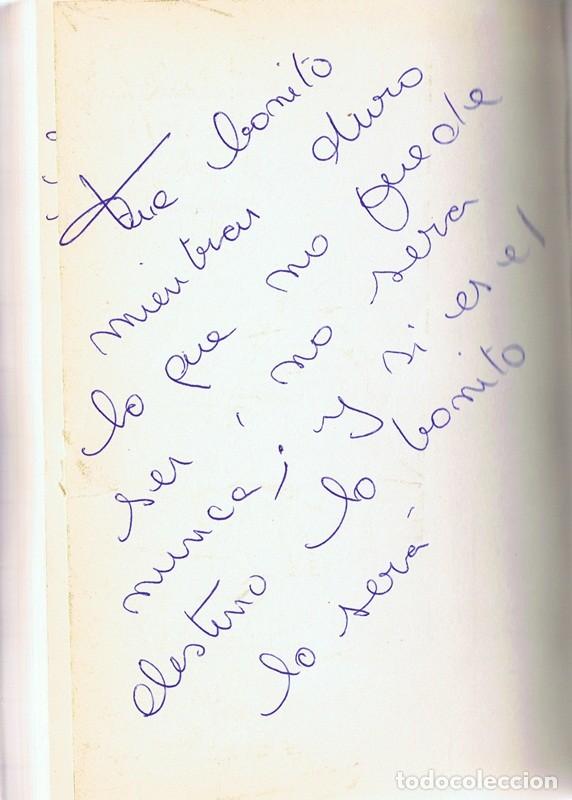 Que bonito
mientras duro
lo que no puede
ser, no sera
nunca; y si es el
destino lo bonito
lo será.
todocoleccion